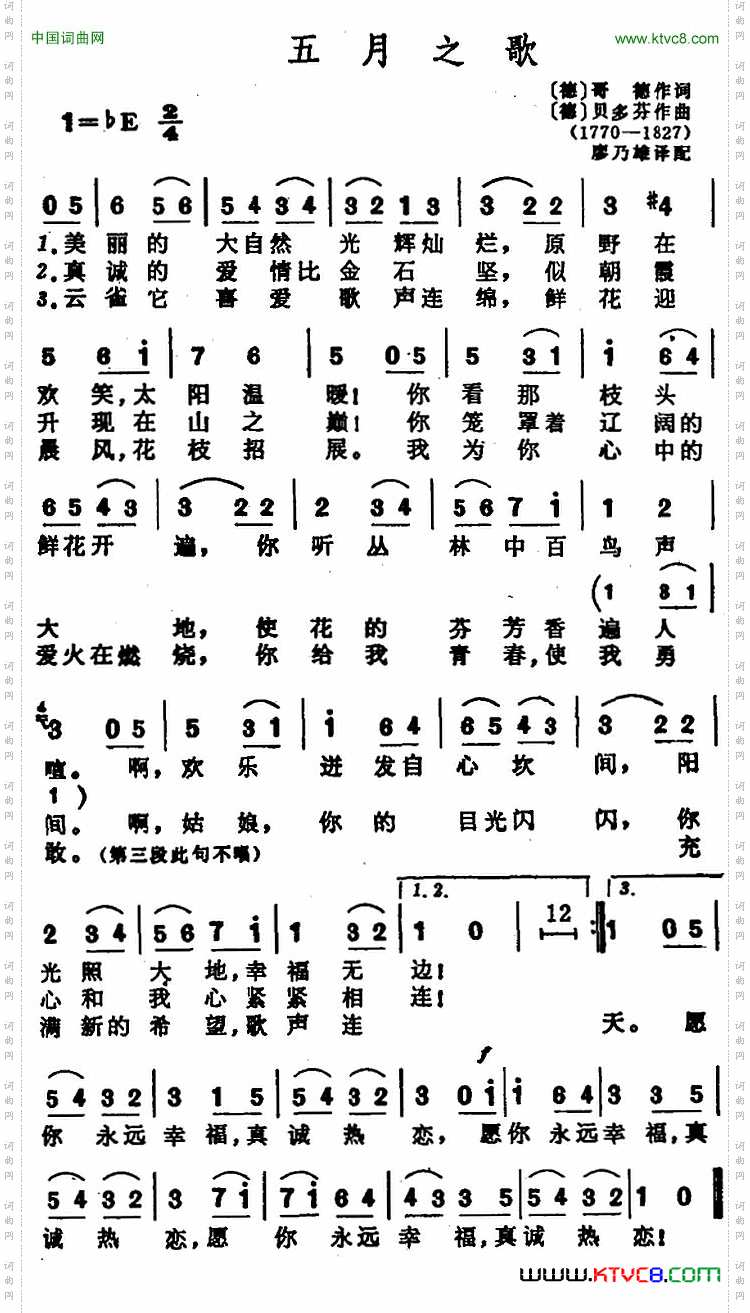 中国词曲网
五月之歌
www.ktvc8.com
〔德〕哥 德作词
〔德〕贝多芬作曲
(1770—1827)
廖乃雄译配
1=♭E 2/4
0 5 | 6 5 6 | 5 4 3 4 | 3 2 1 3 | 3 2 2 | 3 #4
1.美丽的 大自然 光 辉灿烂, 原野在
2.真诚的 爱情比金石 坚, 似朝霞
3.云雀它 喜爱歌声连绵, 鲜花迎
5 6 i | 7 6 | 5 0·5 | 5 3 1 | i 6 4
欢笑,太阳温 暖!你看那 枝头
升现在山之 巅!你笼罩着辽阔的
晨风,花枝招 展。我为你 心中的
6 5 4 3 | 3 2 2 | 2 3 4 | 5 6 7 i | 1 2
鲜花开 遍, 你听丛 林中百鸟声
(1 3 1
大 地, 使花的 芬芳香遍人
爱火在燃 烧, 你给我 青春,使我勇
3 0 5 | 5 3 1 | i 6 4 | 6 5 4 3 | 3 2 2
喧。啊,欢乐 迸发自心坎 间, 阳
1 )
间。啊,姑娘,你的 目光闪 闪, 你
敢。(第三段此句不唱) 充
1.2. 3.
2 3 4 | 5 6 7 i | 1 3 2 | 1 0 | 12 :| 1 0 5
光照 大地,幸福无 边!
心和 我心紧紧相 连!
满新的希望,歌声连 天。愿
f
5 4 3 2 | 3 1 5 | 5 4 3 2 | 3 0 i | i 6 4 | 3 3 5
你 永远幸福,真 诚热 恋, 愿你永远幸福,真
5 4 3 2 | 3 7 i | 7 i 6 4 | 4 3 3 5 | 5 4 3 2 | 1 0
诚热 恋,愿 你 永远 幸福,真诚热 恋!
www.KTVC8.com
词曲网